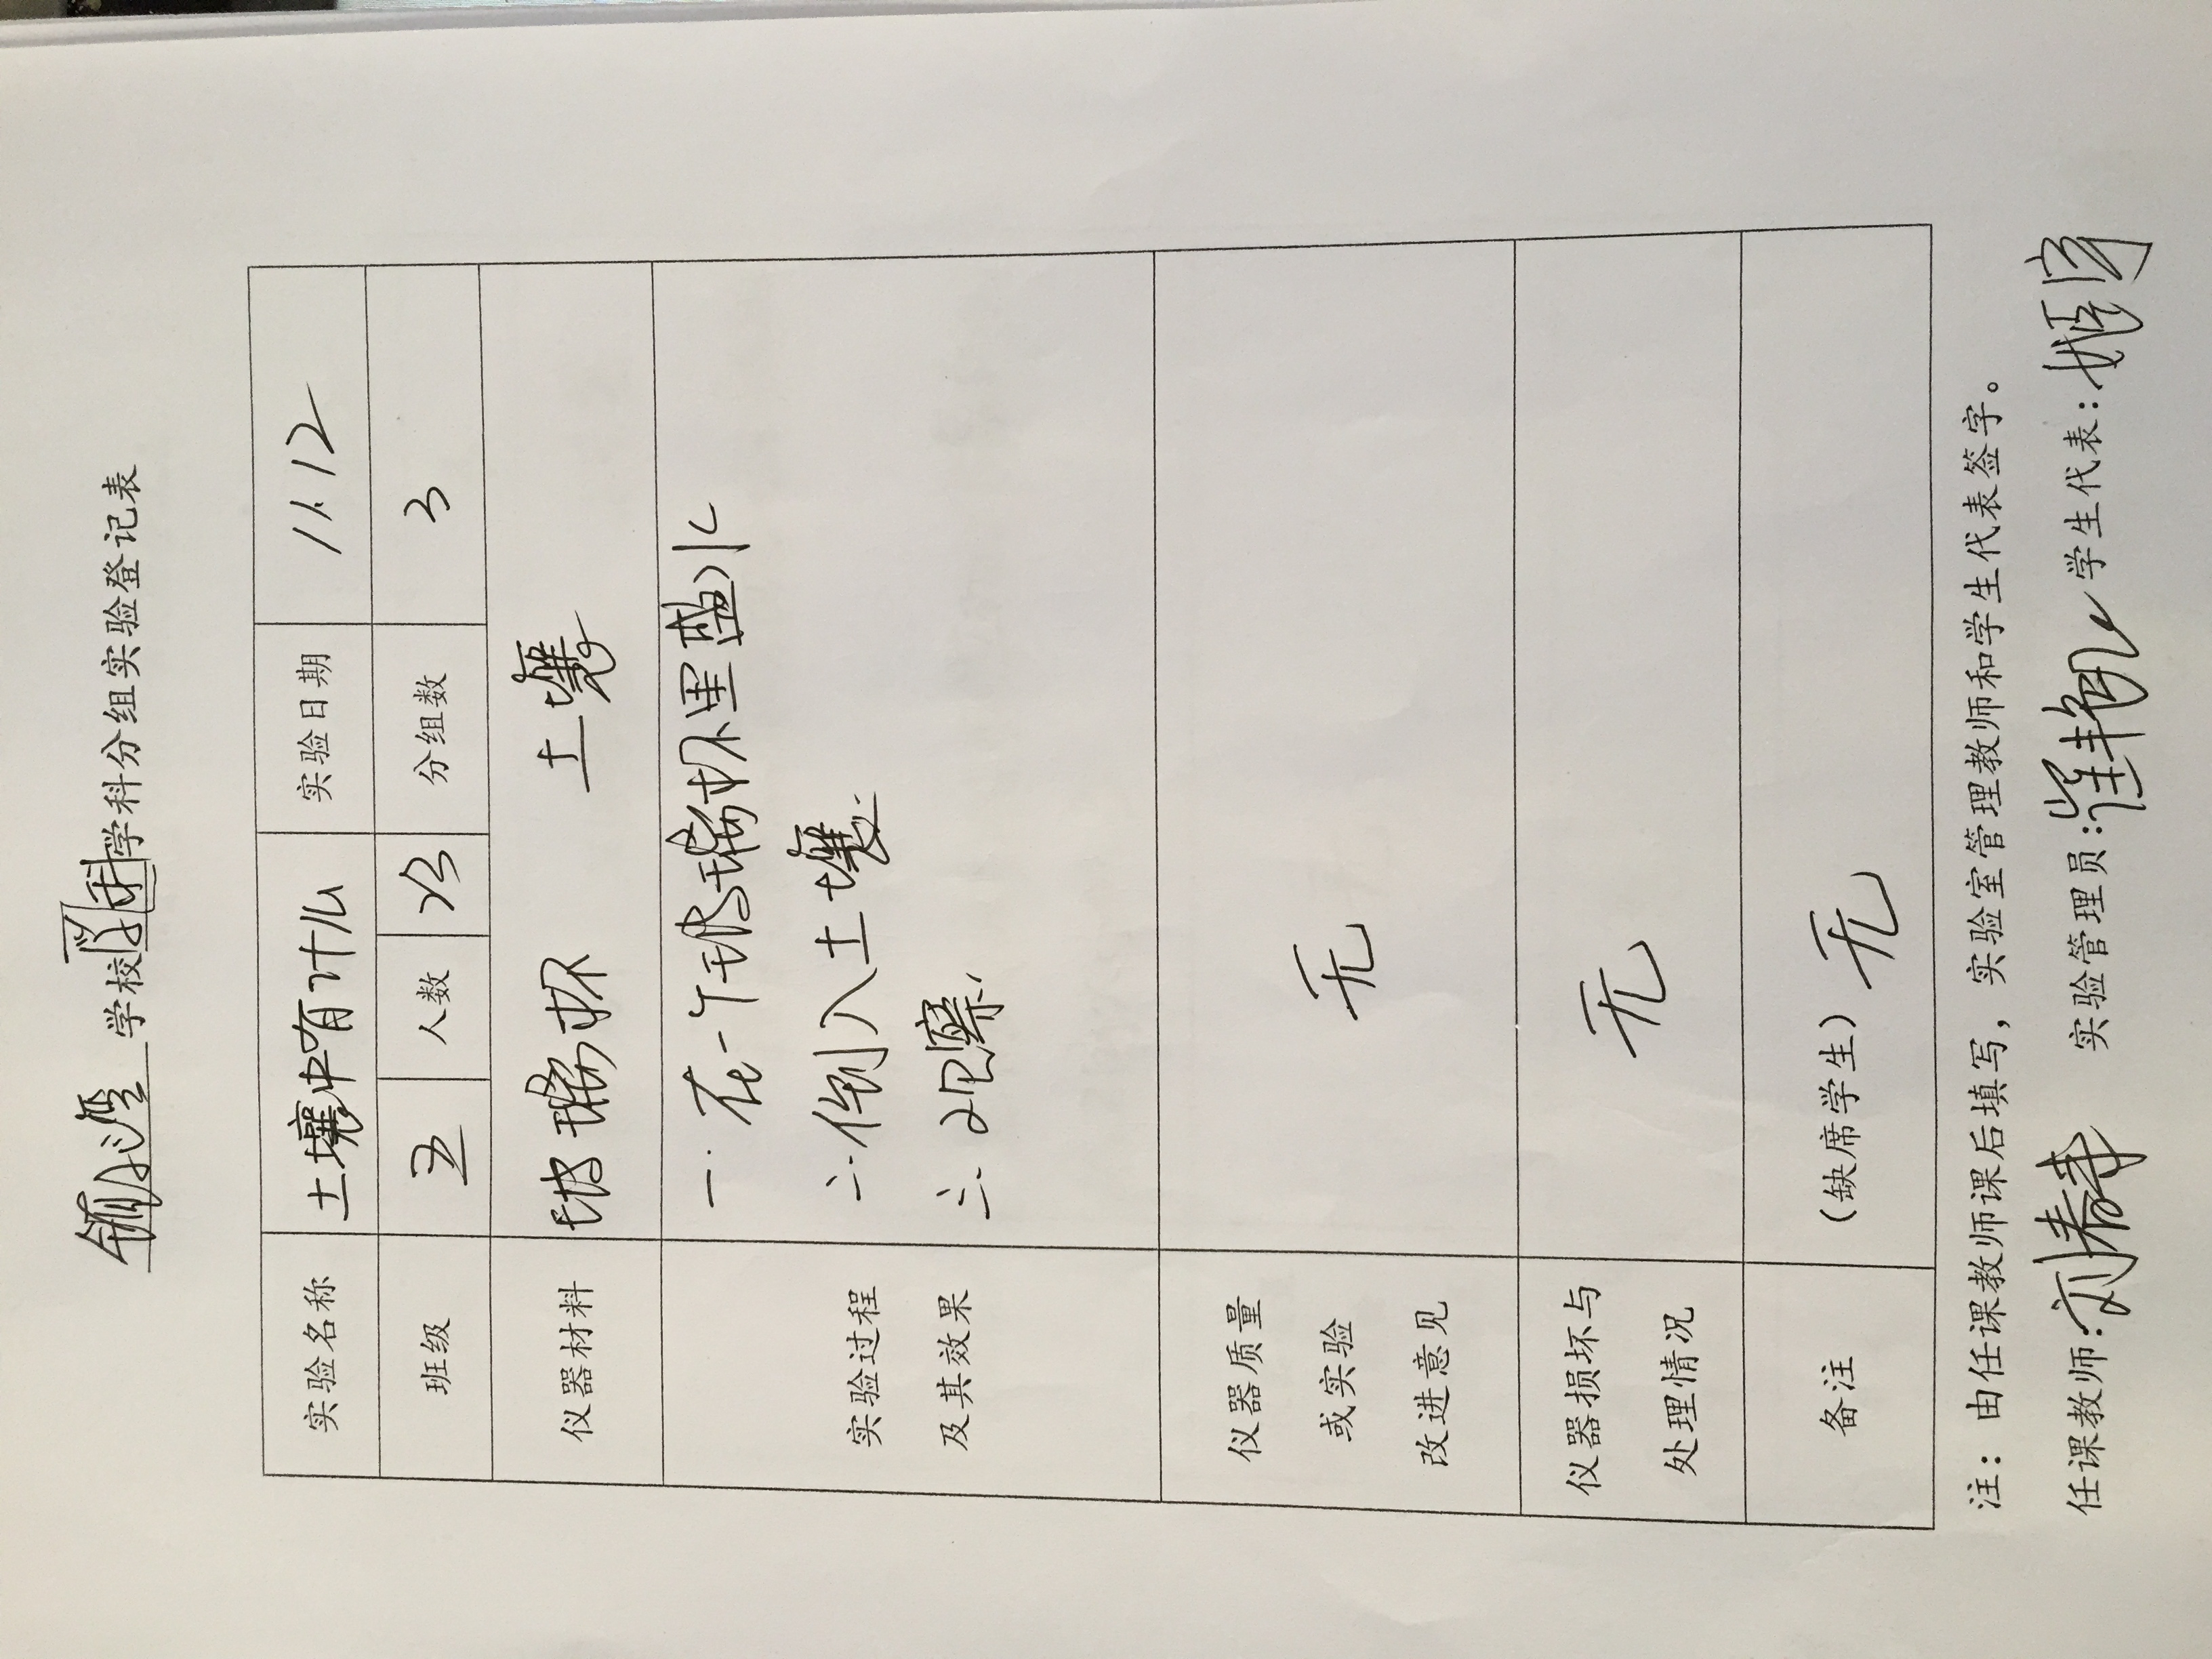 学校 学科分组实验登记表
实验名称 土壤中有什么 实验日期 11.12
班级 五 人数 23 分组数 3
仪器材料 玻璃杯 土壤
实验过程及其效果
一.在一个玻璃杯里盛水
二.倒入土壤.
三.观察.
仪器质量或实验改进意见 无
仪器损坏与处理情况 无
备注 (缺席学生) 无
注：由任课教师课后填写，实验室管理教师和学生代表签字。
任课教师:刘静 实验管理员: 学生代表: